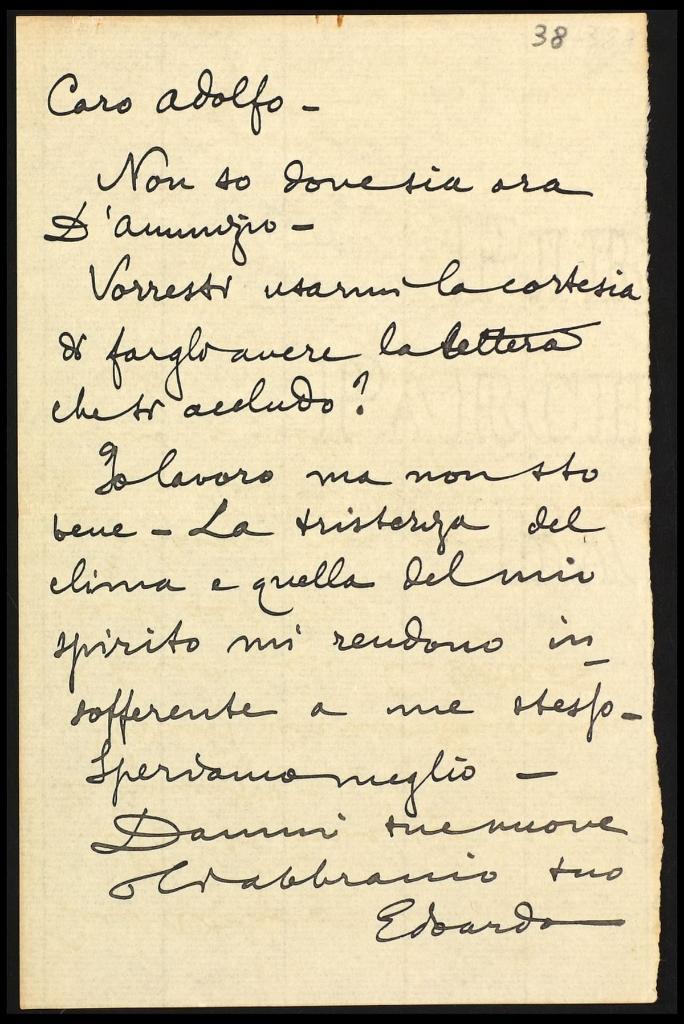 38
Caro Adolfo –
Non so dove sia ora
D'Annunzio –
Vorresti usarmi la cortesia
di fargli avere la lettera
che ti accludo?
Io lavoro ma non sto
bene – La tristezza del
clima e quella del mio
spirito mi rendono in
sofferente a me stesso –
Speriamo meglio –
Dammi tue nuove
abbraccio tuo
Edoardo